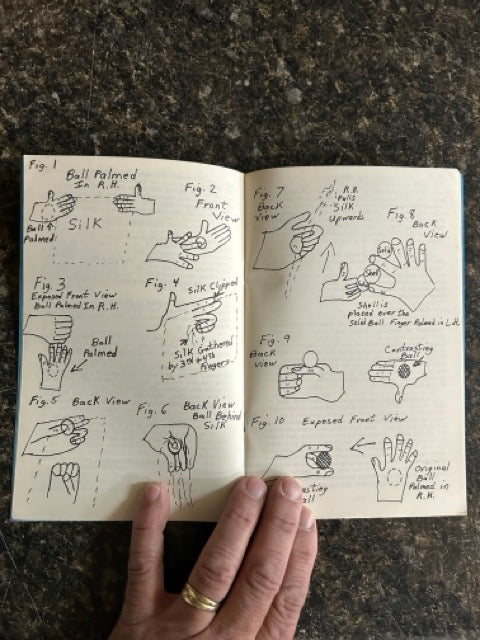 Fig. 1
Ball Palmed
In R.H.
Ball
Palmed
Silk
Fig. 2
Front
View
Fig. 3
Exposed Front View
Ball Palmed In R.H.
Ball
Palmed
Fig. 4
Silk Clipped
Silk Gathered
by 3rd & 4th
Fingers
Fig. 5 Back View
Fig. 6
Back View
Ball Behind
Silk
Fig. 7
Back
View
R.H.
Pulls
Silk
Upwards
Fig. 8
Back
View
Solid
Shell
Shell is
placed over the
Solid Ball Finger Palmed in L.H.
Fig. 9
Back
View
Contrasting
Ball
Fig. 10 Exposed Front View
Original
Ball
Palmed in
R.H.